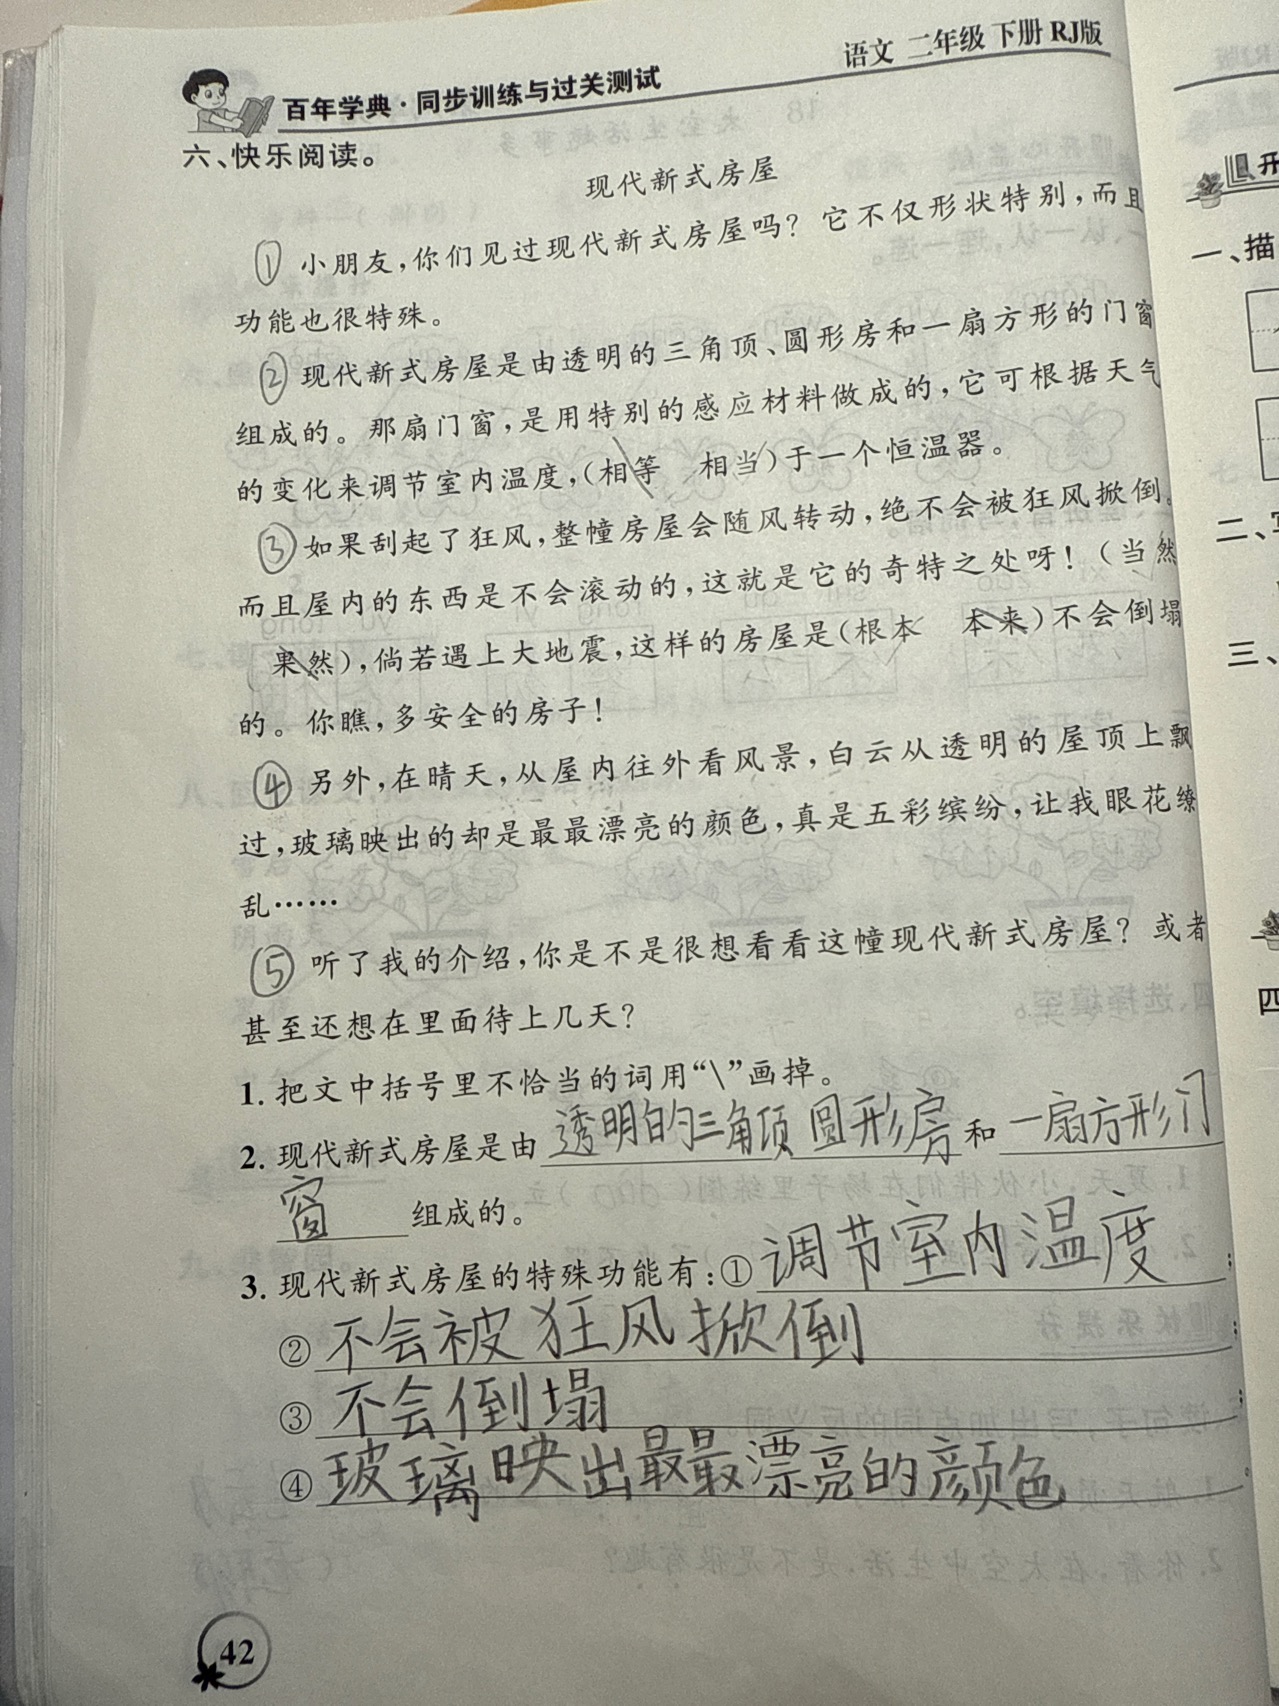 语文 二年级 下册 RJ版
百年学典·同步训练与过关测试
六、快乐阅读。
现代新式房屋
① 小朋友,你们见过现代新式房屋吗? 它不仅形状特别,而且
功能也很特殊。
② 现代新式房屋是由透明的三角顶、圆形房和一扇方形的门窗
组成的。那扇门窗,是用特别的感应材料做成的,它可根据天气
的变化来调节室内温度,(相等 相当)于一个恒温器。
③ 如果刮起了狂风,整幢房屋会随风转动,绝不会被狂风掀倒。
而且屋内的东西是不会滚动的,这就是它的奇特之处呀!(当然
果然),倘若遇上大地震,这样的房屋是(根本 本来)不会倒塌
的。你瞧,多安全的房子!
④ 另外,在晴天,从屋内往外看风景,白云从透明的屋顶上飘
过,玻璃映出的却是最最漂亮的颜色,真是五彩缤纷,让我眼花缭
乱……
⑤ 听了我的介绍,你是不是很想看看这幢现代新式房屋? 或者
甚至还想在里面待上几天?
1. 把文中括号里不恰当的词用“\”画掉。
2. 现代新式房屋是由 透明的三角顶 圆形房 和 一扇方形门
窗 组成的。
3. 现代新式房屋的特殊功能有:① 调节室内温度 ;
② 不会被狂风掀倒 ;
③ 不会倒塌 ;
④ 玻璃映出最最漂亮的颜色 。
42
一、描
二、
三、
四